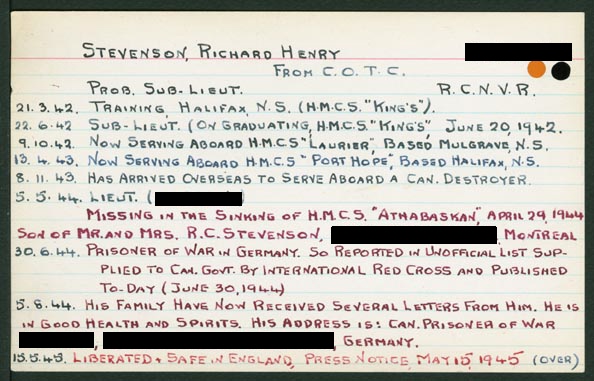 STEVENSON, RICHARD HENRY
FROM C.O.T.C.
PROB. SUB-LIEUT. R.C.N.V.R.
21.3.42. TRAINING, HALIFAX, N.S. (H.M.C.S. "KING'S").
22.6.42 SUB-LIEUT. (ON GRADUATING, H.M.C.S. "KING'S", JUNE 20, 1942.
9.10.42. NOW SERVING ABOARD H.M.C.S "LAURIER", BASED MULGRAVE, N.S.
13.4.43. NOW SERVING ABOARD H.M.C.S "PORT HOPE", BASED HALIFAX, N.S.
8.11.43. HAS ARRIVED OVERSEAS TO SERVE ABOARD A CAN. DESTROYER.
5.5.44. LIEUT. ( )
MISSING IN THE SINKING OF H.M.C.S. "ATHABASKAN", APRIL 29, 1944
SON OF MR. AND MRS. R.C. STEVENSON, MONTREAL
30.6.44. PRISONER OF WAR IN GERMANY. SO REPORTED IN UNOFFICIAL LIST SUP-
PLIED TO CAN. GOVT. BY INTERNATIONAL RED CROSS AND PUBLISHED
TO-DAY (JUNE 30, 1944)
5.8.44. HIS FAMILY HAVE NOW RECEIVED SEVERAL LETTERS FROM HIM. HE IS
IN GOOD HEALTH AND SPIRITS. HIS ADDRESS IS: CAN. PRISONER OF WAR
, , GERMANY.
15.5.45. LIBERATED + SAFE IN ENGLAND, PRESS NOTICE, MAY 15, 1945 (OVER)